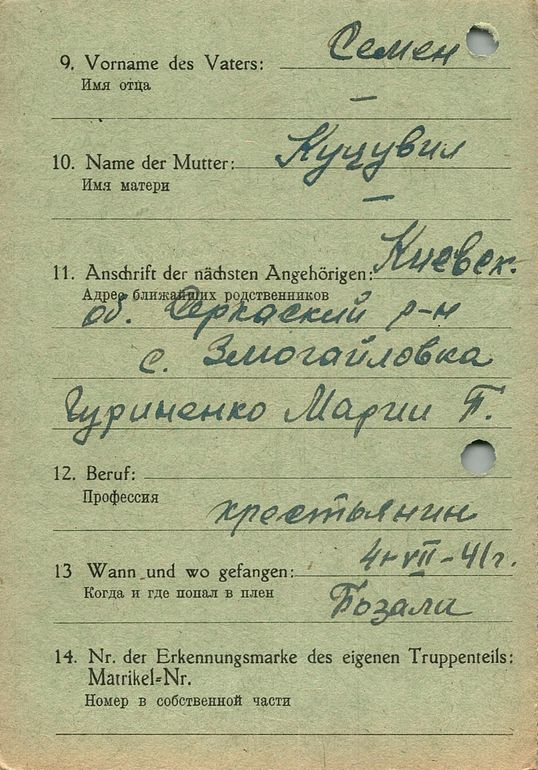 9. Vorname des Vaters: Семен
Имя отца
–
10. Name der Mutter: Куцувил
Имя матери
–
11. Anschrift der nächsten Angehörigen: Киевск.
Адрес ближайших родственников
об. Черкаский р-н
с. Змогайловка
Гуриненко Марии П.
12. Beruf:
Профессия
хрестьянин
13 Wann und wo gefangen: VII-41г.
Когда и где попал в плен
14. Nr. der Erkennungsmarke des eigenen Truppenteils:
Matrikel=Nr.
Номер в собственной части